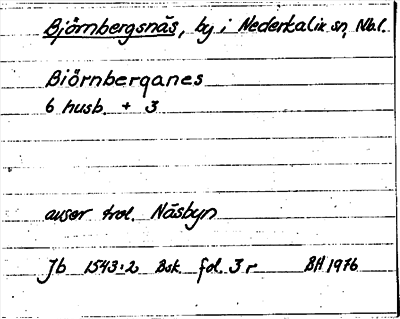 Björnbergsnäs, by i Nederkalix sn, Nbl.
Biörnberganes
6 husb. + 3
avser trol. Näsbyn
Jb 1543:2 Bsk fol. 3 r BH 1976